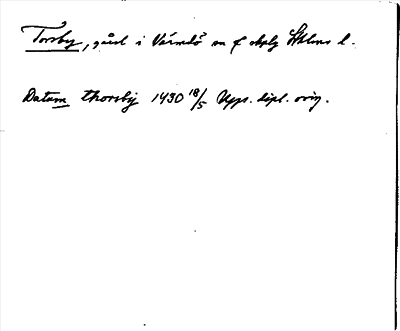 Torsby, gård i Värmdö sn o chplg Sthlms l.
Datum thorsby 1430 18/5 Upps. dipl. orig.